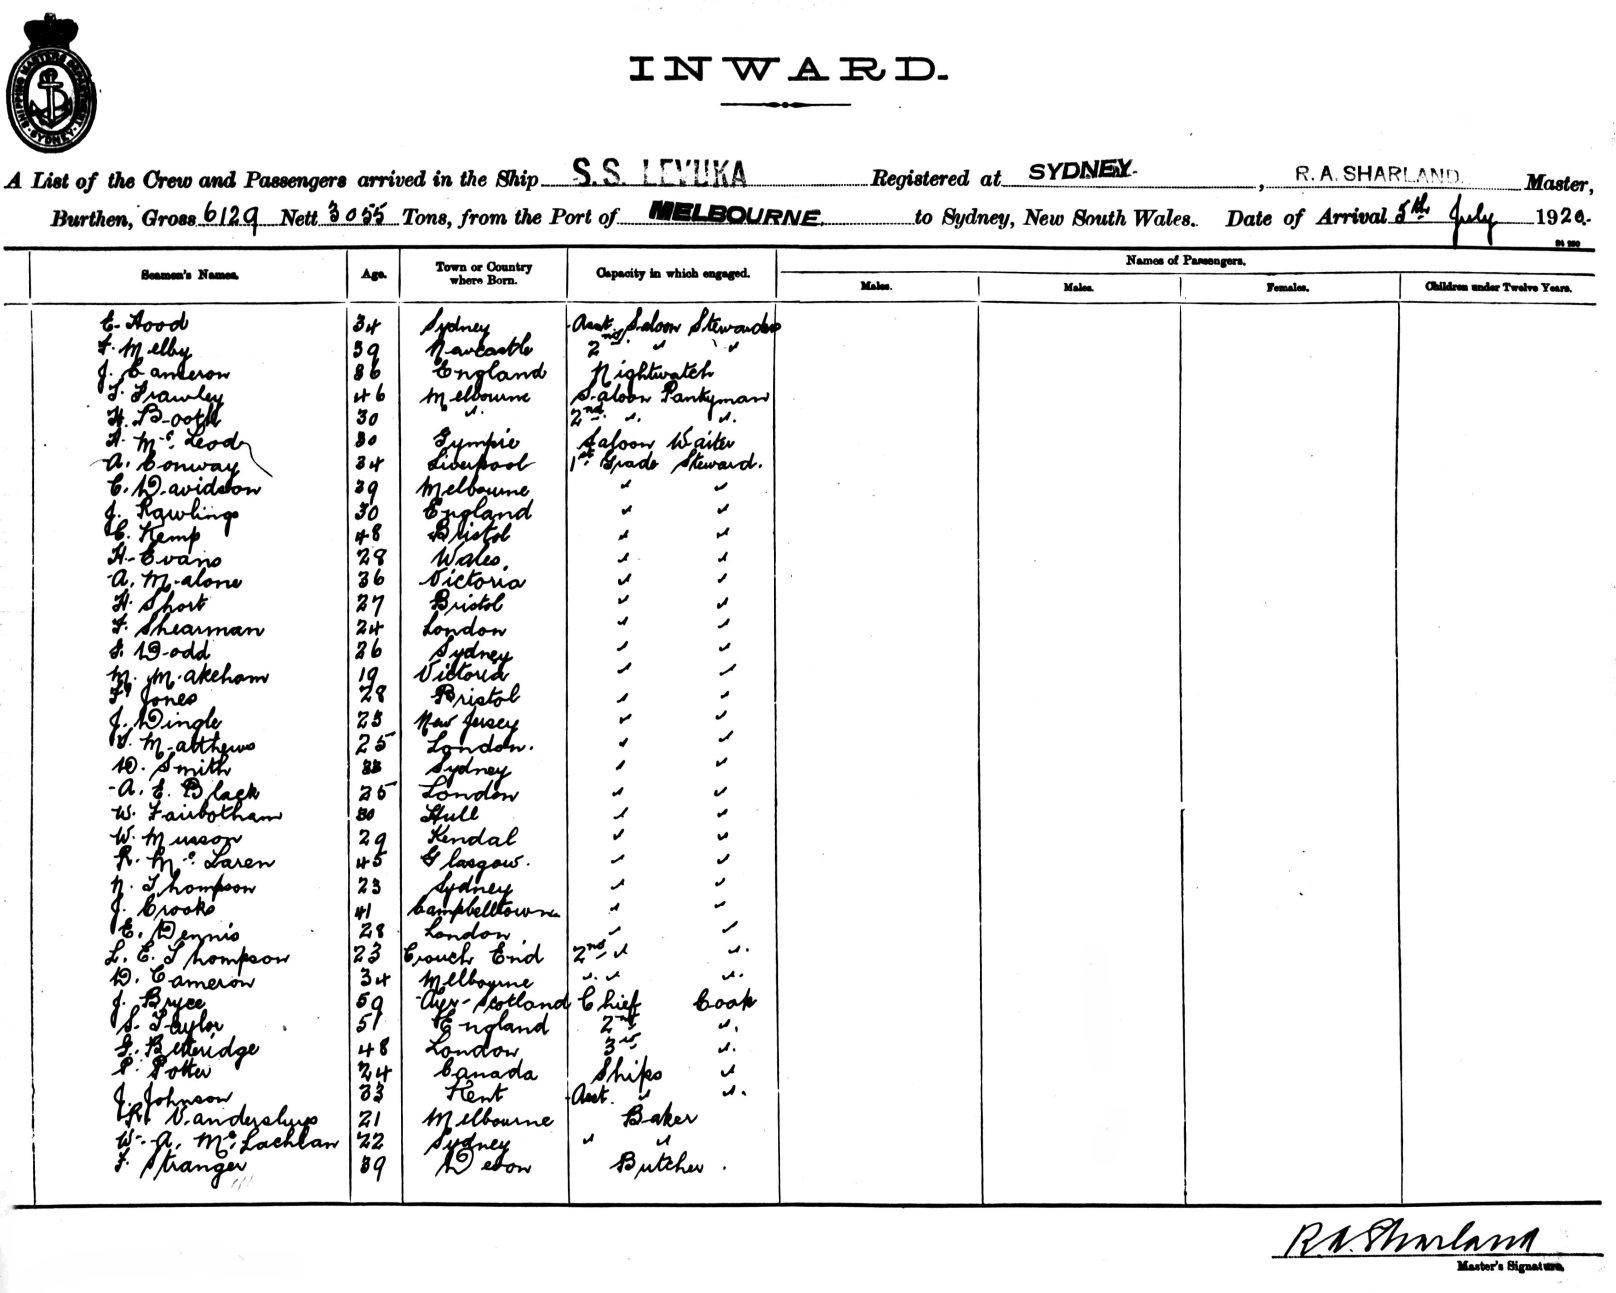 SHIPPING MASTERS DEPARTMENT
SYDNEY
INWARD.
A List of the Crew and Passengers arrived in the Ship S.S. LEVUKA Registered at SYDNEY. , R. A. SHARLAND. Master,
Burthen, Gross 6129 Nett 3055 Tons, from the Port of MELBOURNE. to Sydney, New South Wales. Date of Arrival 5th July 1920.
Names of Passengers.
Seamen's Names. Age. Town or Country where Born. Capacity in which engaged. Males. Males. Females. Children under Twelve Years.
E. Hood 34 Sydney Asst Saloon Stewardess
F. Melby 39 Newcastle 2nd " "
J. Cameron 36 England Nightwatch
T. Frawley 46 Melbourne Saloon Pantryman
H. Booth 30 " 2nd " "
H. McLeod 30 Gympie Saloon Waiter
A. Conway 34 Liverpool 1st Grade Steward.
C. Davidson 39 Melbourne " "
J. Rawlings 30 England " "
C. Kemp 48 Bristol " "
H. Evans 28 Wales. " "
A. Malone 36 Victoria " "
H. Short 27 Bristol " "
F. Shearman 24 London " "
S. Dodd 26 Sydney " "
M. Makeham 19 Victoria " "
F. Jones 28 Bristol " "
J. Dingle 23 New Jersey " "
T. Matthews 25 London. " "
D. Smith 33 Sydney " "
A. E. Black 25 London " "
W. Fairbotham 30 Hull " "
W. Musson 29 Kendal " "
R. McLaren 45 Glasgow. " "
N. Thompson 23 Sydney " "
J. Crooks 41 Campbelltown " "
E. Dennis 28 London " "
L. E. Thompson 23 Crouch End 2nd " "
D. Cameron 34 Melbourne " " "
J. Bryce 59 Ayr-Scotland Chief Cook
S. Taylor 51 England 2nd "
G. Betteridge 48 London 3rd "
P. Potter 24 Canada Ships "
J. Johnson 33 Kent Asst. " "
R. Vandersluys 21 Melbourne Baker
W. A. McLachlan 22 Sydney " "
F. Stranger 39 Devon Butcher.
R. A. Sharland
Master's Signature.